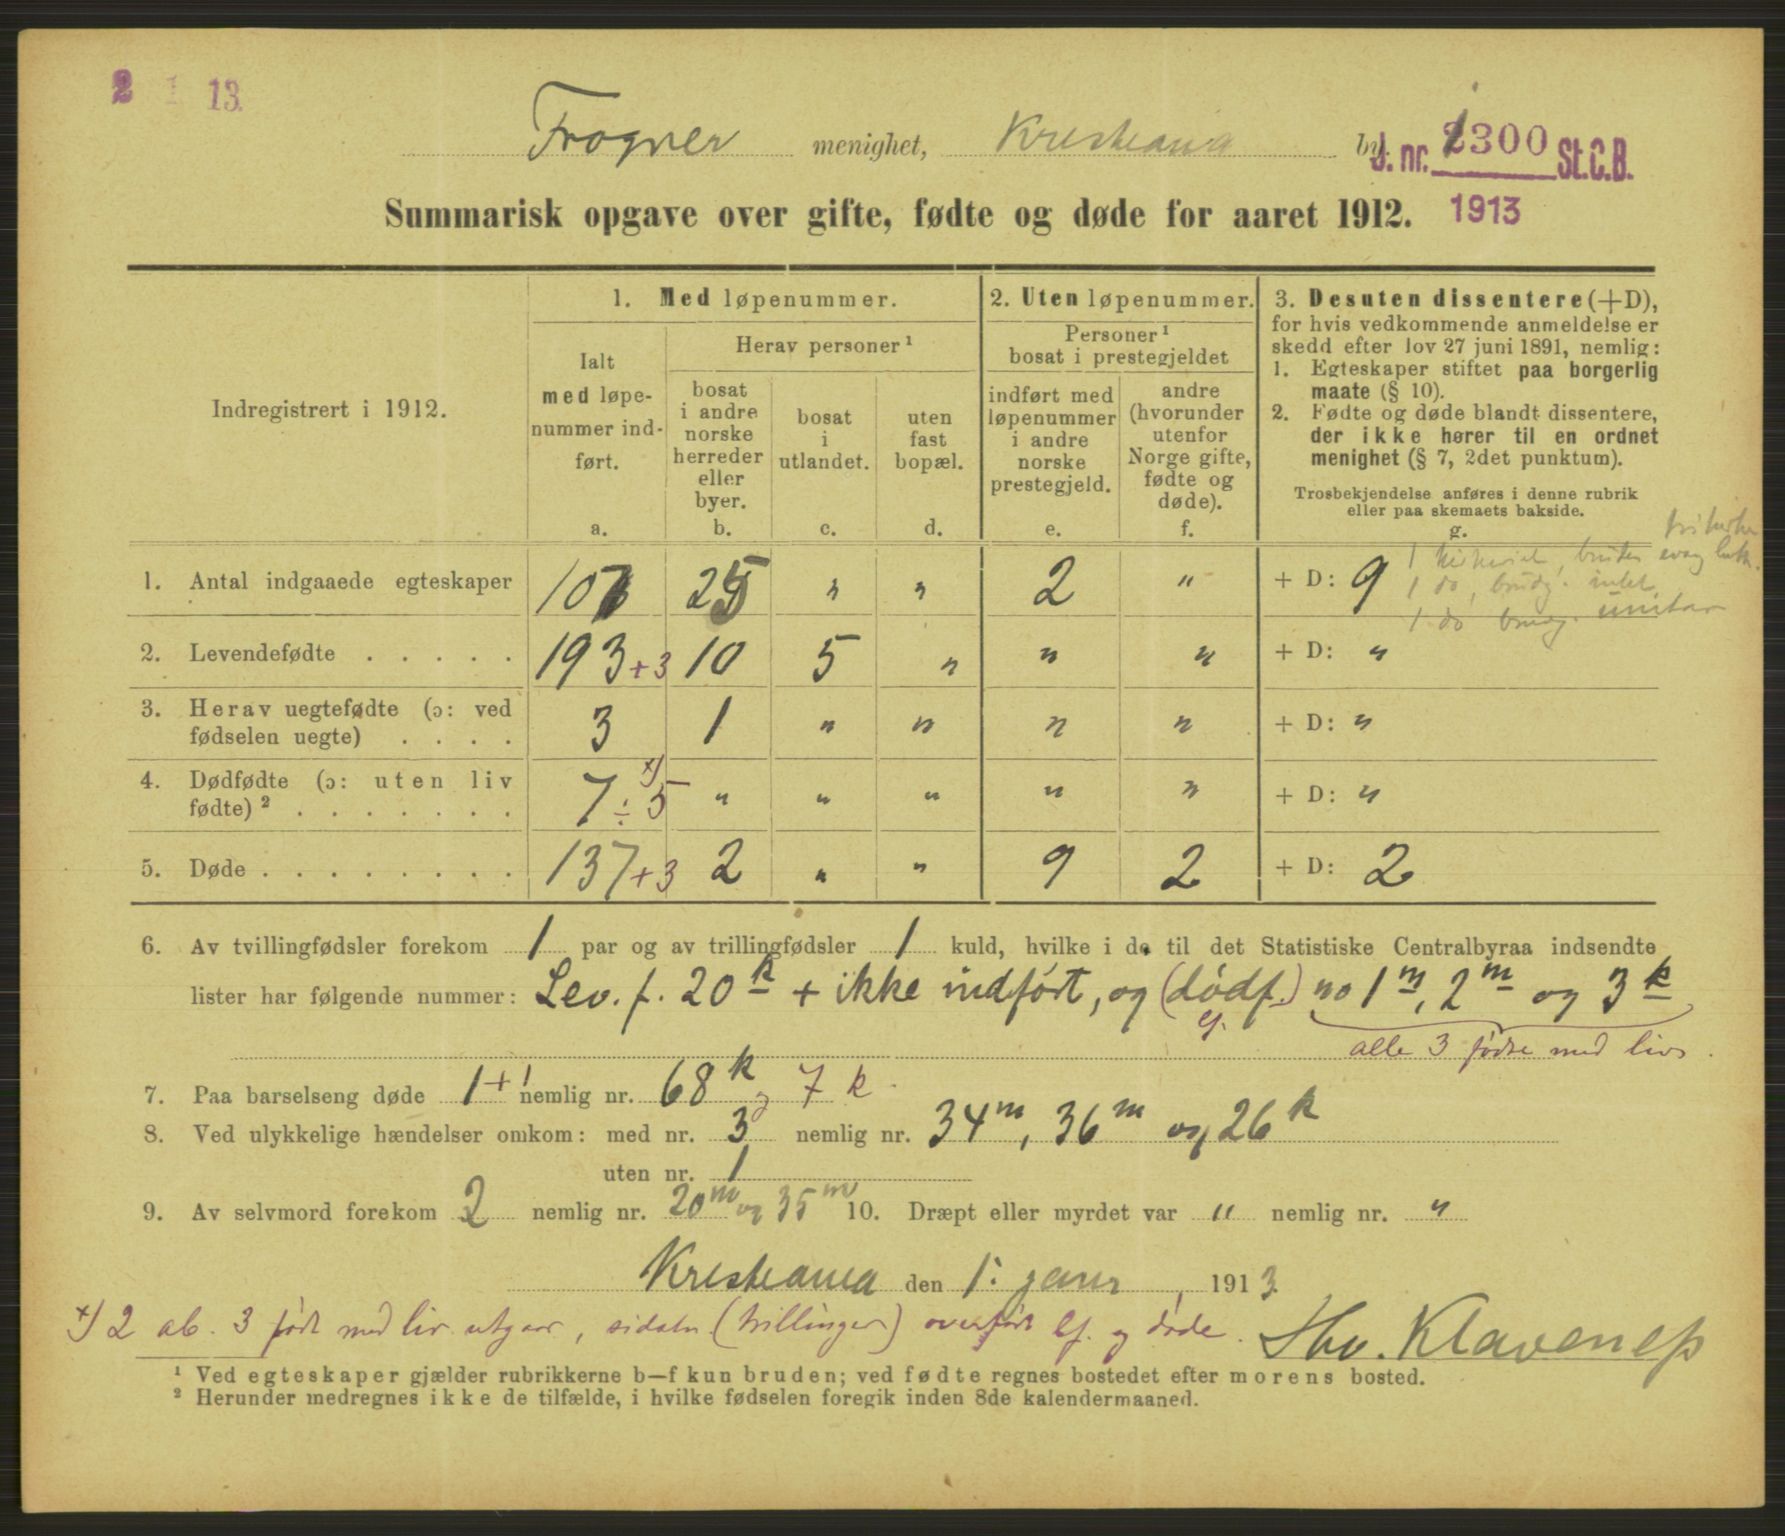 2 1 13.
Frogner menighet, Kristiania by.
J. nr. 2300 St.C.B.
1913
Summarisk opgave over gifte, fødte og døde for aaret 1912.
Indregistrert i 1912.
1. Med løpenummer.
Ialt
med løpe-
nummer ind-
ført.
a.
Herav personer ¹
bosat
i andre
norske
herreder
eller
byer.
b.
bosat
i
utlandet.
c.
uten
fast
bopæl.
d.
2. Uten løpenummer.
Personer ¹
bosat i prestegjeldet
indført med
løpenummer
i andre
norske
prestegjeld.
e.
andre
(hvorunder
utenfor
Norge gifte,
fødte og
døde).
f.
3. Desuten dissentere (+D),
for hvis vedkommende anmeldelse er
skedd efter lov 27 juni 1891, nemlig:
1. Egteskaper stiftet paa borgerlig
maate (§ 10).
2. Fødte og døde blandt dissentere,
der ikke hører til en ordnet
menighet (§ 7, 2det punktum).
Trosbekjendelse anføres i denne rubrik
eller paa skemaets bakside.
g.
1. Antal indgaaede egteskaper 25 " " 2 " + D: 9
1 bruden evang luth.
1 do, brudg. intet
1 do brudg. unitar
2. Levendefødte . . . . . 193 +3 10 5 " " " + D: "
3. Herav uegtefødte (ɔ: ved
fødselen uegte) . . . . 3 1 " " " " + D: "
4. Dødfødte (ɔ: uten liv
fødte) ² . . . . . . . 7 ÷ 5 x) " " " " " + D: "
5. Døde . . . . . . . . . 137 +3 2 " " 9 2 + D: 2
6. Av tvillingfødsler forekom 1 par og av trillingfødsler 1 kuld, hvilke i de til det Statistiske Centralbyraa indsendte
lister har følgende nummer: Lev. f. 20 k + ikke indført, og (dødf.) no 1 m, 2 m og 3 k
lf.
alle 3 fødte med liv.
7. Paa barselseng døde 1 +1 nemlig nr. 68 k og 7 k.
8. Ved ulykkelige hændelser omkom: med nr. 3 nemlig nr. 34 m, 36 m og 26 k
uten nr. 1
9. Av selvmord forekom 2 nemlig nr. 20 m og 35 m 10. Dræpt eller myrdet var " nemlig nr. "
Kristiania den 1. januar 1913.
x) 2 ab. 3 født med liv utgaar, sidste (trillinger) overført lf. og døde.
Klaveness
¹ Ved egteskaper gjælder rubrikkerne b—f kun bruden; ved fødte regnes bostedet efter morens bosted.
² Herunder medregnes ikke de tilfælde, i hvilke fødselen foregik inden 8de kalendermaaned.